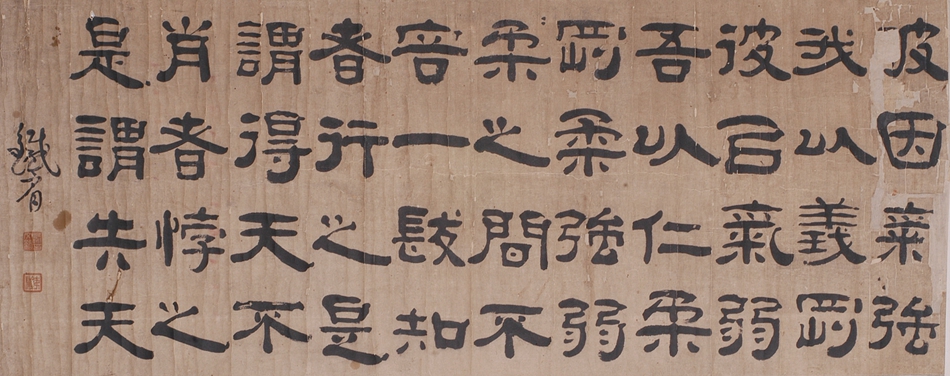 彼因氣強
我以義剛
彼㠯氣弱
吾以仁柔
剛柔強弱
柔之間不
容一髮知
者行之是
謂得天不
肖者悖之
是謂失天